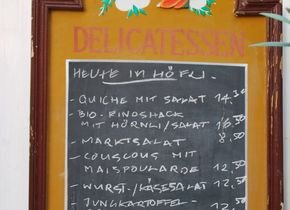 DELICATESSEN
HEUTE IM HÖFLI.
- QUICHE MIT SALAT 14,50
- BIO-RINDSHACK
MIT HÖRNLI/SALAT 16,50
- MARKTSALAT 8,50
- COUSCOUS MIT
MAISPOULARDE 12,50
- WURST-/KÄSESALAT 12,50
- JUNGKARTOFFEL-